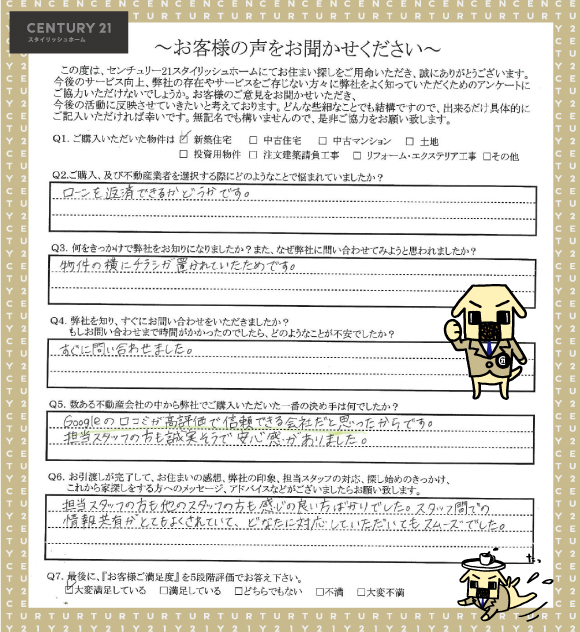 CENTURY 21
スタイリッシュホーム
～お客様の声をお聞かせください～
この度は、センチュリー21スタイリッシュホームにてお住まい探しをご用命いただき、誠にありがとうございます。
今後のサービス向上、弊社の存在やサービスをご存じない方々に弊社をよく知っていただくためのアンケートに
ご協力いただけないでしょうか。お客様のご意見をお聞かせいただき、
今後の活動に反映させていきたいと考えております。どんな些細なことでも結構ですので、出来るだけ具体的に
ご記入いただければ幸いです。無記名でも構いませんので、是非ご協力をお願い致します。
Q1. ご購入いただいた物件は ☑ 新築住宅 □ 中古住宅 □ 中古マンション □ 土地
□ 投資用物件 □ 注文建築請負工事 □ リフォーム・エクステリア工事 □その他
Q2.ご購入、及び不動産業者を選択する際にどのようなことで悩まれていましたか？
ローンを返済できるかどうかです。
Q3. 何をきっかけで弊社をお知りになりましたか？また、なぜ弊社に問い合わせてみようと思われましたか？
物件の横にチラシが置かれていたためです。
Q4. 弊社を知り、すぐにお問い合わせをいただきましたか？
もしお問い合わせまで時間がかかったのでしたら、どのようなことが不安でしたか？
すぐに問い合わせました。
Q5. 数ある不動産会社の中から弊社でご購入いただいた一番の決め手は何でしたか？
Googleの口コミが高評価で信頼できる会社だと思ったからです。
担当スタッフの方も誠実そうで安心感がありました。
Q6. お引渡しが完了して、お住まいの感想、弊社の印象、担当スタッフの対応、探し始めのきっかけ、
これから家探しをする方へのメッセージ、アドバイスなどがございましたらお願い致します。
担当スタッフの方も他のスタッフの方も感じの良い方ばかりでした。スタッフ間での
情報共有がとてもよくされていて、どなたに対応していただいてもスムーズでした。
Q7. 最後に、『お客様ご満足度』を5段階評価でお答え下さい。
☑大変満足している □満足している □どちらでもない □不満 □大変不満